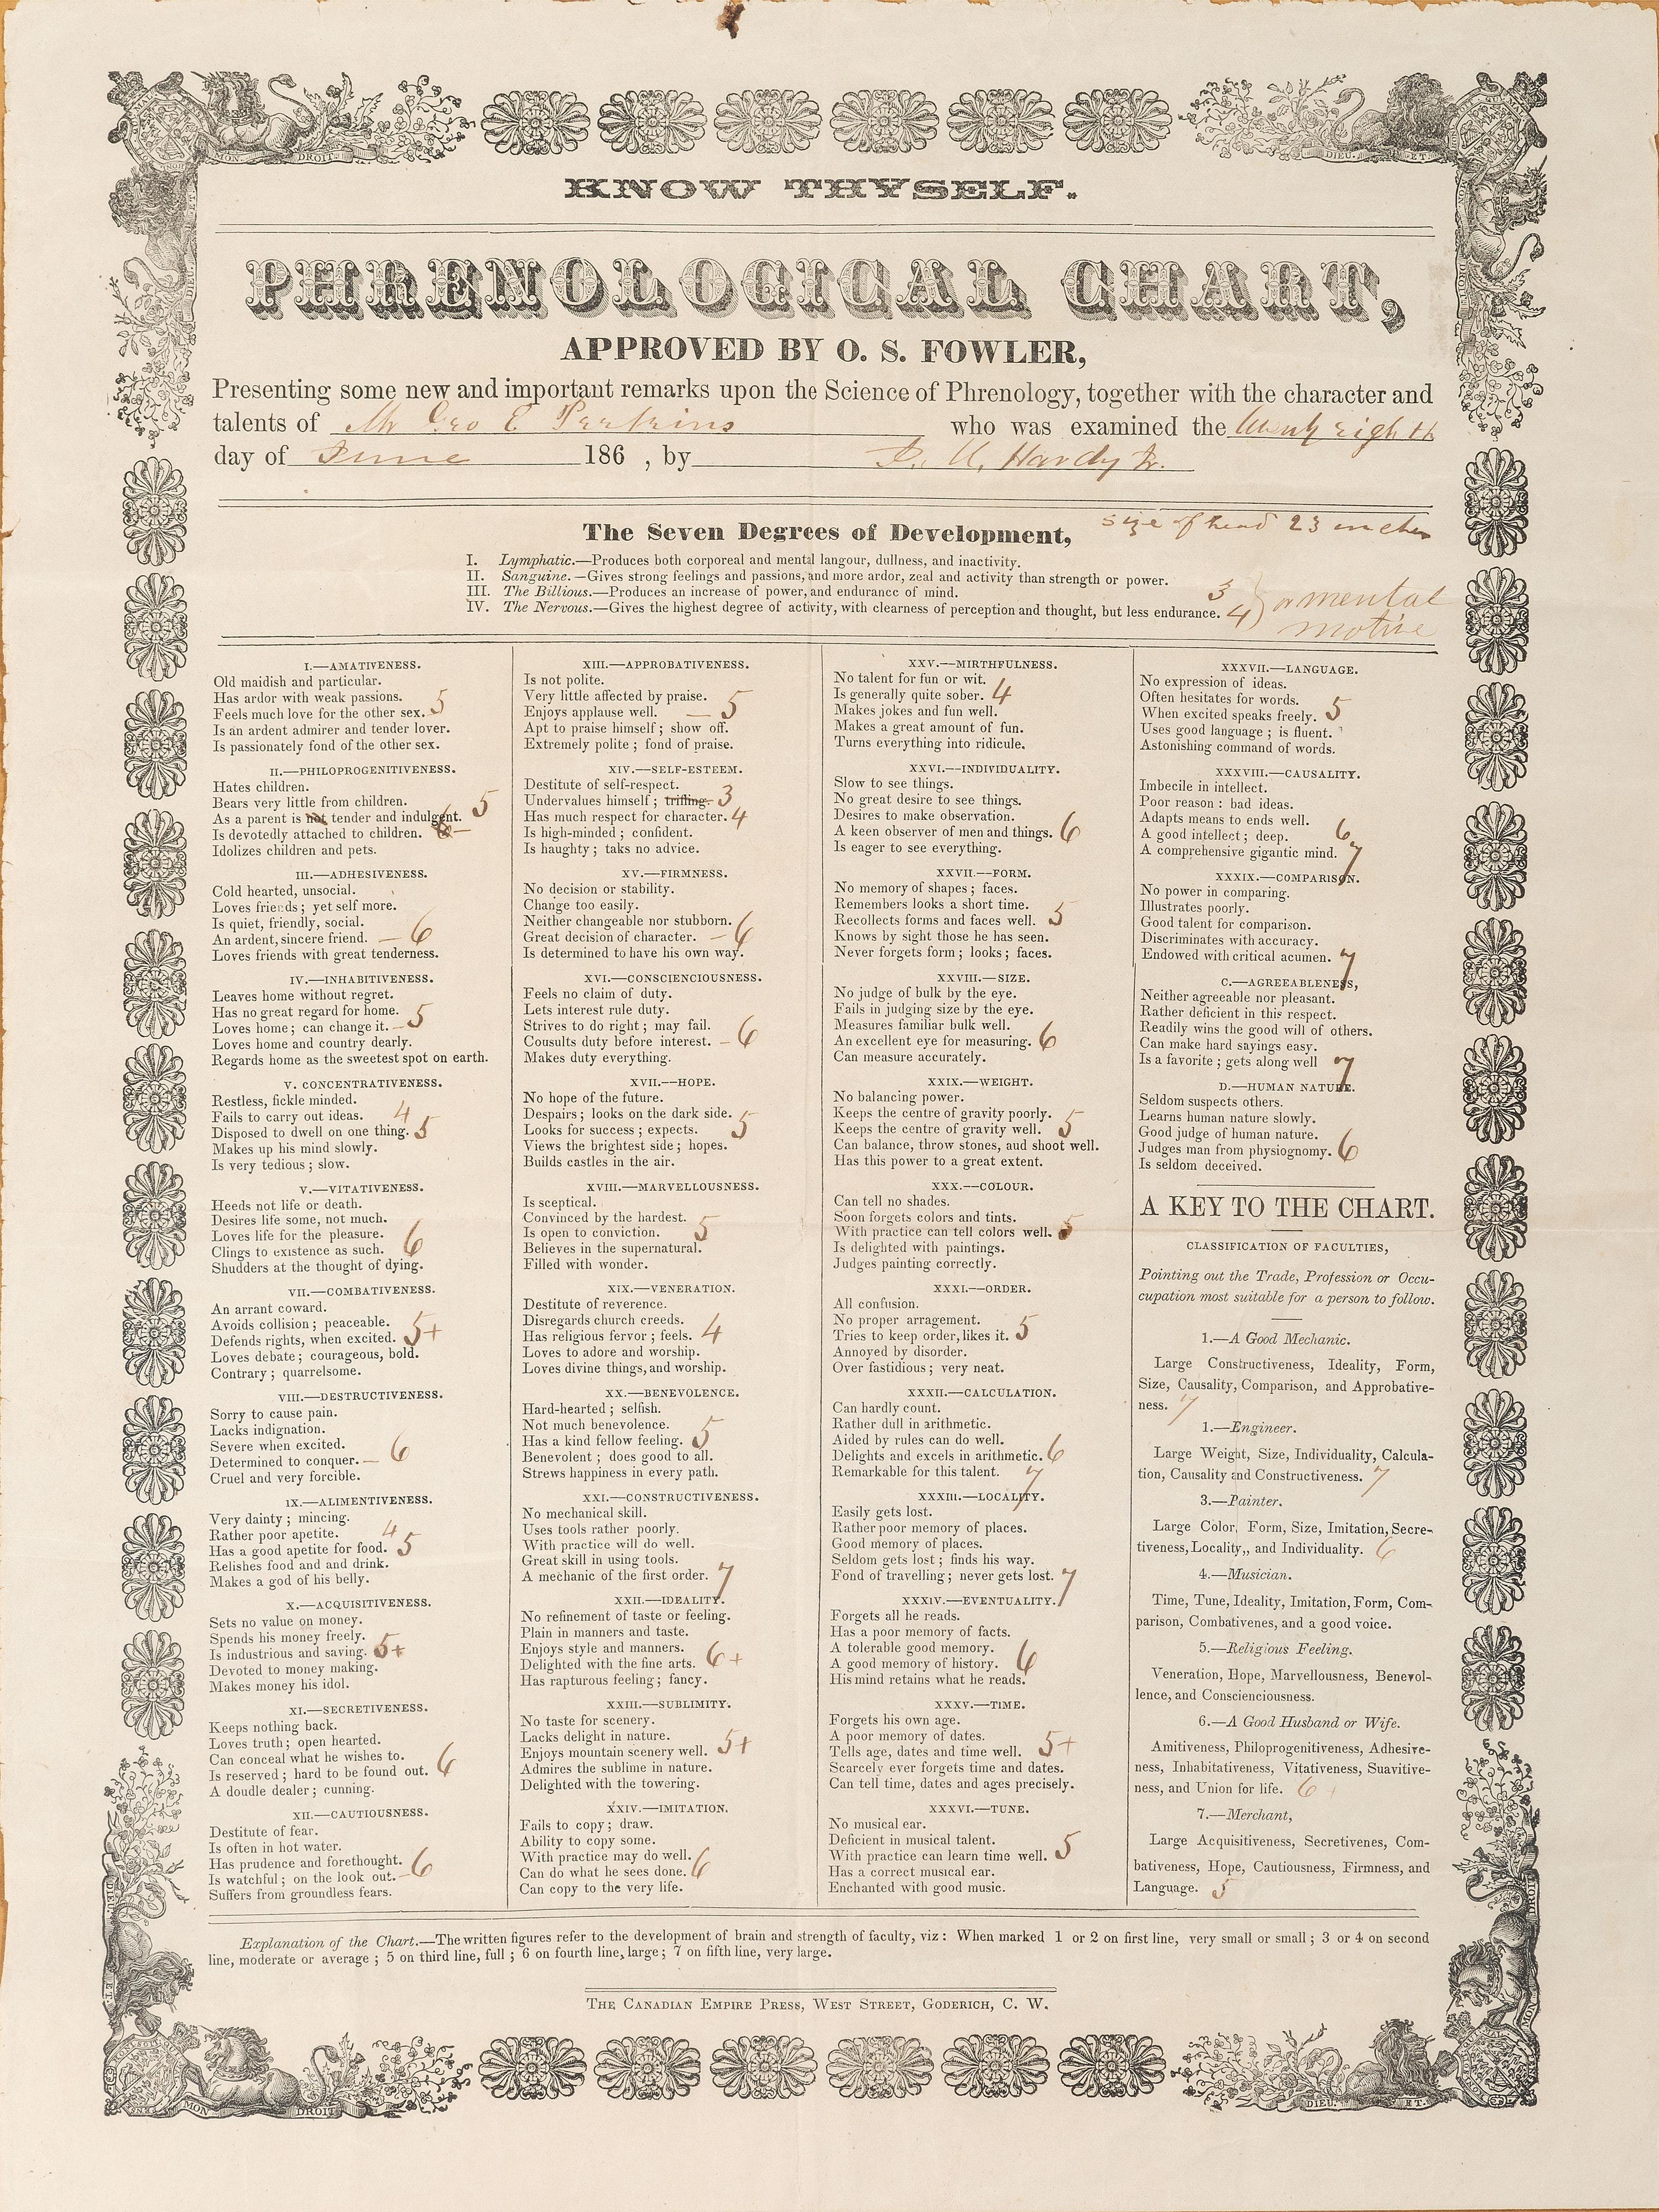 KNOW THYSELF.
PHRENOLOGICAL CHART,
APPROVED BY O. S. FOWLER,
Presenting some new and important remarks upon the Science of Phrenology, together with the character and
talents of Mr Geo E Perkins who was examined the twenty eighth
day of June 186 , by Hardy Jr.
The Seven Degrees of Development,
size of head 23 inches
I. Lymphatic.—Produces both corporeal and mental langour, dullness, and inactivity.
II. Sanguine.—Gives strong feelings and passions, and more ardor, zeal and activity than strength or power.
III. The Billious.—Produces an increase of power, and endurance of mind. 3
IV. The Nervous.—Gives the highest degree of activity, with clearness of perception and thought, but less endurance. 4
or mental
motive
I.—AMATIVENESS.
Old maidish and particular.
Has ardor with weak passions.
Feels much love for the other sex. 5
Is an ardent admirer and tender lover.
Is passionately fond of the other sex.
II.—PHILOPROGENITIVENESS.
Hates children.
Bears very little from children.
As a parent is not tender and indulgent. 5
Is devotedly attached to children.
Idolizes children and pets.
III.—ADHESIVENESS.
Cold hearted, unsocial.
Loves friends; yet self more.
Is quiet, friendly, social.
An ardent, sincere friend. — 6
Loves friends with great tenderness.
IV.—INHABITIVENESS.
Leaves home without regret.
Has no great regard for home.
Loves home; can change it. — 5
Loves home and country dearly.
Regards home as the sweetest spot on earth.
V. CONCENTRATIVENESS.
Restless, fickle minded.
Fails to carry out ideas. 4
Disposed to dwell on one thing. 5
Makes up his mind slowly.
Is very tedious; slow.
V.—VITATIVENESS.
Heeds not life or death.
Desires life some, not much.
Loves life for the pleasure.
Clings to existence as such. 6
Shudders at the thought of dying.
VII.—COMBATIVENESS.
An arrant coward.
Avoids collision; peaceable.
Defends rights, when excited. 5+
Loves debate; courageous, bold.
Contrary; quarrelsome.
VIII.—DESTRUCTIVENESS.
Sorry to cause pain.
Lacks indignation.
Severe when excited.
Determined to conquer. — 6
Cruel and very forcible.
IX.—ALIMENTIVENESS.
Very dainty; mincing.
Rather poor apetite. 4
Has a good apetite for food. 5
Relishes food and and drink.
Makes a god of his belly.
X.—ACQUISITIVENESS.
Sets no value on money.
Spends his money freely.
Is industrious and saving. 5+
Devoted to money making.
Makes money his idol.
XI.—SECRETIVENESS.
Keeps nothing back.
Loves truth; open hearted.
Can conceal what he wishes to.
Is reserved; hard to be found out. 6
A doudle dealer; cunning.
XII.—CAUTIOUSNESS.
Destitute of fear.
Is often in hot water.
Has prudence and forethought.
Is watchful; on the look out. — 6
Suffers from groundless fears.
XIII.—APPROBATIVENESS.
Is not polite.
Very little affected by praise.
Enjoys applause well. — 5
Apt to praise himself; show off.
Extremely polite; fond of praise.
XIV.—SELF-ESTEEM.
Destitute of self-respect.
Undervalues himself; trifling. 3
Has much respect for character. 4
Is high-minded; confident.
Is haughty; takes no advice.
XV.—FIRMNESS.
No decision or stability.
Change too easily.
Neither changeable nor stubborn.
Great decision of character. — 6
Is determined to have his own way.
XVI.—CONSCIENCIOUSNESS.
Feels no claim of duty.
Lets interest rule duty.
Strives to do right; may fail.
Cousults duty before interest. — 6
Makes duty everything.
XVII.—HOPE.
No hope of the future.
Despairs; looks on the dark side.
Looks for success; expects. 5
Views the brightest side; hopes.
Builds castles in the air.
XVIII.—MARVELLOUSNESS.
Is sceptical.
Convinced by the hardest.
Is open to conviction. 5
Believes in the supernatural.
Filled with wonder.
XIX.—VENERATION.
Destitute of reverence.
Disregards church creeds.
Has religious fervor; feels. 4
Loves to adore and worship.
Loves divine things, and worship.
XX.—BENEVOLENCE.
Hard-hearted; selfish.
Not much benevolence.
Has a kind fellow feeling. 5
Benevolent; does good to all.
Strews happiness in every path.
XXI.—CONSTRUCTIVENESS.
No mechanical skill.
Uses tools rather poorly.
With practice will do well.
Great skill in using tools.
A mechanic of the first order. 7
XXII.—IDEALITY.
No refinement of taste or feeling.
Plain in manners and taste.
Enjoys style and manners.
Delighted with the fine arts. 6+
Has rapturous feeling; fancy.
XXIII.—SUBLIMITY.
No taste for scenery.
Lacks delight in nature.
Enjoys mountain scenery well. 5+
Admires the sublime in nature.
Delighted with the towering.
XXIV.—IMITATION.
Fails to copy; draw.
Ability to copy some.
With practice may do well.
Can do what he sees done. 6
Can copy to the very life.
XXV.—MIRTHFULNESS.
No talent for fun or wit.
Is generally quite sober. 4
Makes jokes and fun well.
Makes a great amount of fun.
Turns everything into ridicule.
XXVI.—INDIVIDUALITY.
Slow to see things.
No great desire to see things.
Desires to make observation.
A keen observer of men and things. 6
Is eager to see everything.
XXVII.—FORM.
No memory of shapes; faces.
Remembers looks a short time.
Recollects forms and faces well. 5
Knows by sight those he has seen.
Never forgets form; looks; faces.
XXVIII.—SIZE.
No judge of bulk by the eye.
Fails in judging size by the eye.
Measures familiar bulk well.
An excellent eye for measuring. 6
Can measure accurately.
XXIX.—WEIGHT.
No balancing power.
Keeps the centre of gravity poorly.
Keeps the centre of gravity well. 5
Can balance, throw stones, and shoot well.
Has this power to a great extent.
XXX.—COLOUR.
Can tell no shades.
Soon forgets colors and tints.
With practice can tell colors well. 5
Is delighted with paintings.
Judges painting correctly.
XXXI.—ORDER.
All confusion.
No proper arragement.
Tries to keep order, likes it. 5
Annoyed by disorder.
Over fastidious; very neat.
XXXII.—CALCULATION.
Can hardly count.
Rather dull in arithmetic.
Aided by rules can do well.
Delights and excels in arithmetic. 6
Remarkable for this talent. 7
XXXIII.—LOCALITY.
Easily gets lost.
Rather poor memory of places.
Good memory of places.
Seldom gets lost; finds his way.
Fond of travelling; never gets lost. 7
XXXIV.—EVENTUALITY.
Forgets all he reads.
Has a poor memory of facts.
A tolerable good memory.
A good memory of history. 6
His mind retains what he reads.
XXXV.—TIME.
Forgets his own age.
A poor memory of dates.
Tells age, dates and time well. 5+
Scarcely ever forgets time and dates.
Can tell time, dates and ages precisely.
XXXVI.—TUNE.
No musical ear.
Deficient in musical talent.
With practice can learn time well. 5
Has a correct musical ear.
Enchanted with good music.
XXXVII.—LANGUAGE.
No expression of ideas.
Often hesitates for words.
When excited speaks freely. 5
Uses good language; is fluent.
Astonishing command of words.
XXXVIII.—CAUSALITY.
Imbecile in intellect.
Poor reason: bad ideas.
Adapts means to ends well.
A good intellect; deep. 6
A comprehensive gigantic mind. 7
XXXIX.—COMPARISON.
No power in comparing.
Illustrates poorly.
Good talent for comparison.
Discriminates with accuracy.
Endowed with critical acumen. 7
C.—AGREEABLENESS,
Neither agreeable nor pleasant.
Rather deficient in this respect.
Readily wins the good will of others.
Can make hard sayings easy.
Is a favorite; gets along well 7
D.—HUMAN NATURE.
Seldom suspects others.
Learns human nature slowly.
Good judge of human nature.
Judges man from physiognomy. 6
Is seldom deceived.
A KEY TO THE CHART.
CLASSIFICATION OF FACULTIES,
Pointing out the Trade, Profession or Occu-
cupation most suitable for a person to follow.
1.—A Good Mechanic.
Large Constructiveness, Ideality, Form,
Size, Causality, Comparison, and Approbative-
ness. 7
1.—Engineer.
Large Weight, Size, Individuality, Calcula-
tion, Causality and Constructiveness. 7
3.—Painter.
Large Color, Form, Size, Imitation, Secre-
tiveness, Locality,, and Individuality. 6
4.—Musician.
Time, Tune, Ideality, Imitation, Form, Com-
parison, Combativenes, and a good voice.
5.—Religious Feeling.
Veneration, Hope, Marvellousness, Benevol-
lence, and Conscienciousness.
6.—A Good Husband or Wife.
Amitiveness, Philoprogenitiveness, Adhesive-
ness, Inhabitativeness, Vitativeness, Suavitive-
ness, and Union for life. 6+
7.—Merchant,
Large Acquisitiveness, Secretivenes, Com-
bativeness, Hope, Cautiousness, Firmness, and
Language. 5
Explanation of the Chart.—The written figures refer to the development of brain and strength of faculty, viz: When marked 1 or 2 on first line, very small or small; 3 or 4 on second
line, moderate or average; 5 on third line, full; 6 on fourth line, large; 7 on fifth line, very large.
THE CANADIAN EMPIRE PRESS, WEST STREET, GODERICH, C. W.
MON DROIT
DIEU ET
MON DROIT
DIEU. ET.